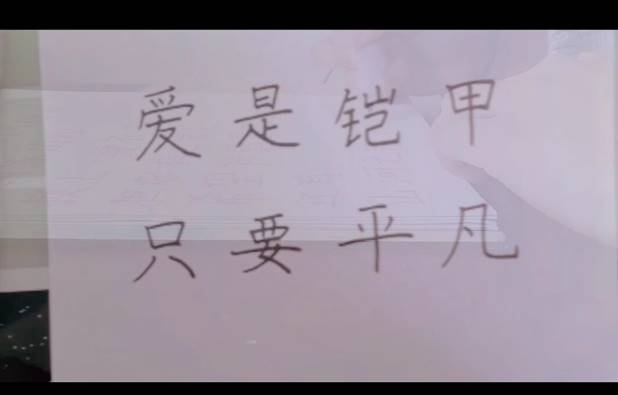 爱是铠甲
只要平凡